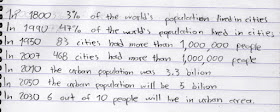 In 1800 3% of the world's population lived in cities
In 1990 47% of the world's population lived in cities
In 1950 83 cities had more than 1,000,000 people
In 2007 468 cities had more than 1,000,000 people
In 2010 the urban population was 3.3 bilion
In 2050 the urban population will be 5 bilion
In 2030 6 out of 10 people will live in urban area.